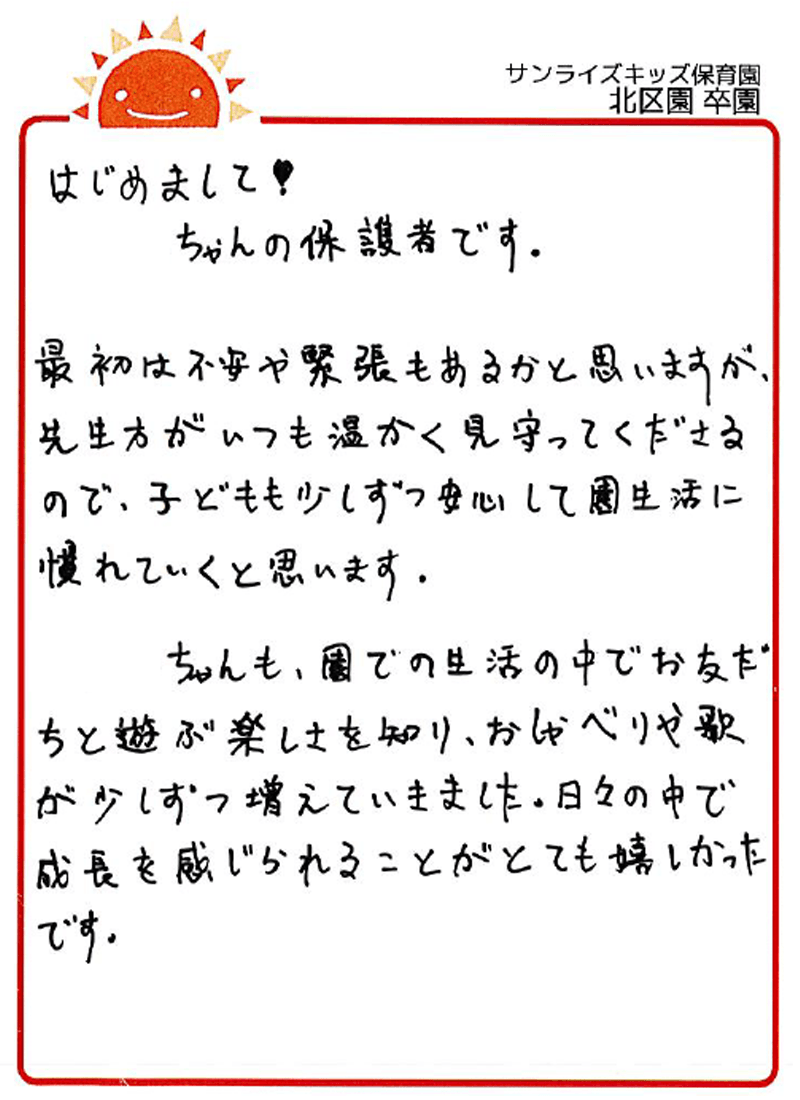 サンライズキッズ保育園
北区園 卒園
はじめまして♥
ちゃんの保護者です。
最初は不安や緊張もあるかと思いますが、
先生方がいつも温かく見守ってくださる
ので、子どもも少しずつ安心して園生活に
慣れていくと思います。
ちゃんも、園での生活の中でお友だ
ちと遊ぶ楽しさを知り、おしゃべりや歌
が少しずつ増えていきました。日々の中で
成長を感じられることがとても嬉しかった
です。